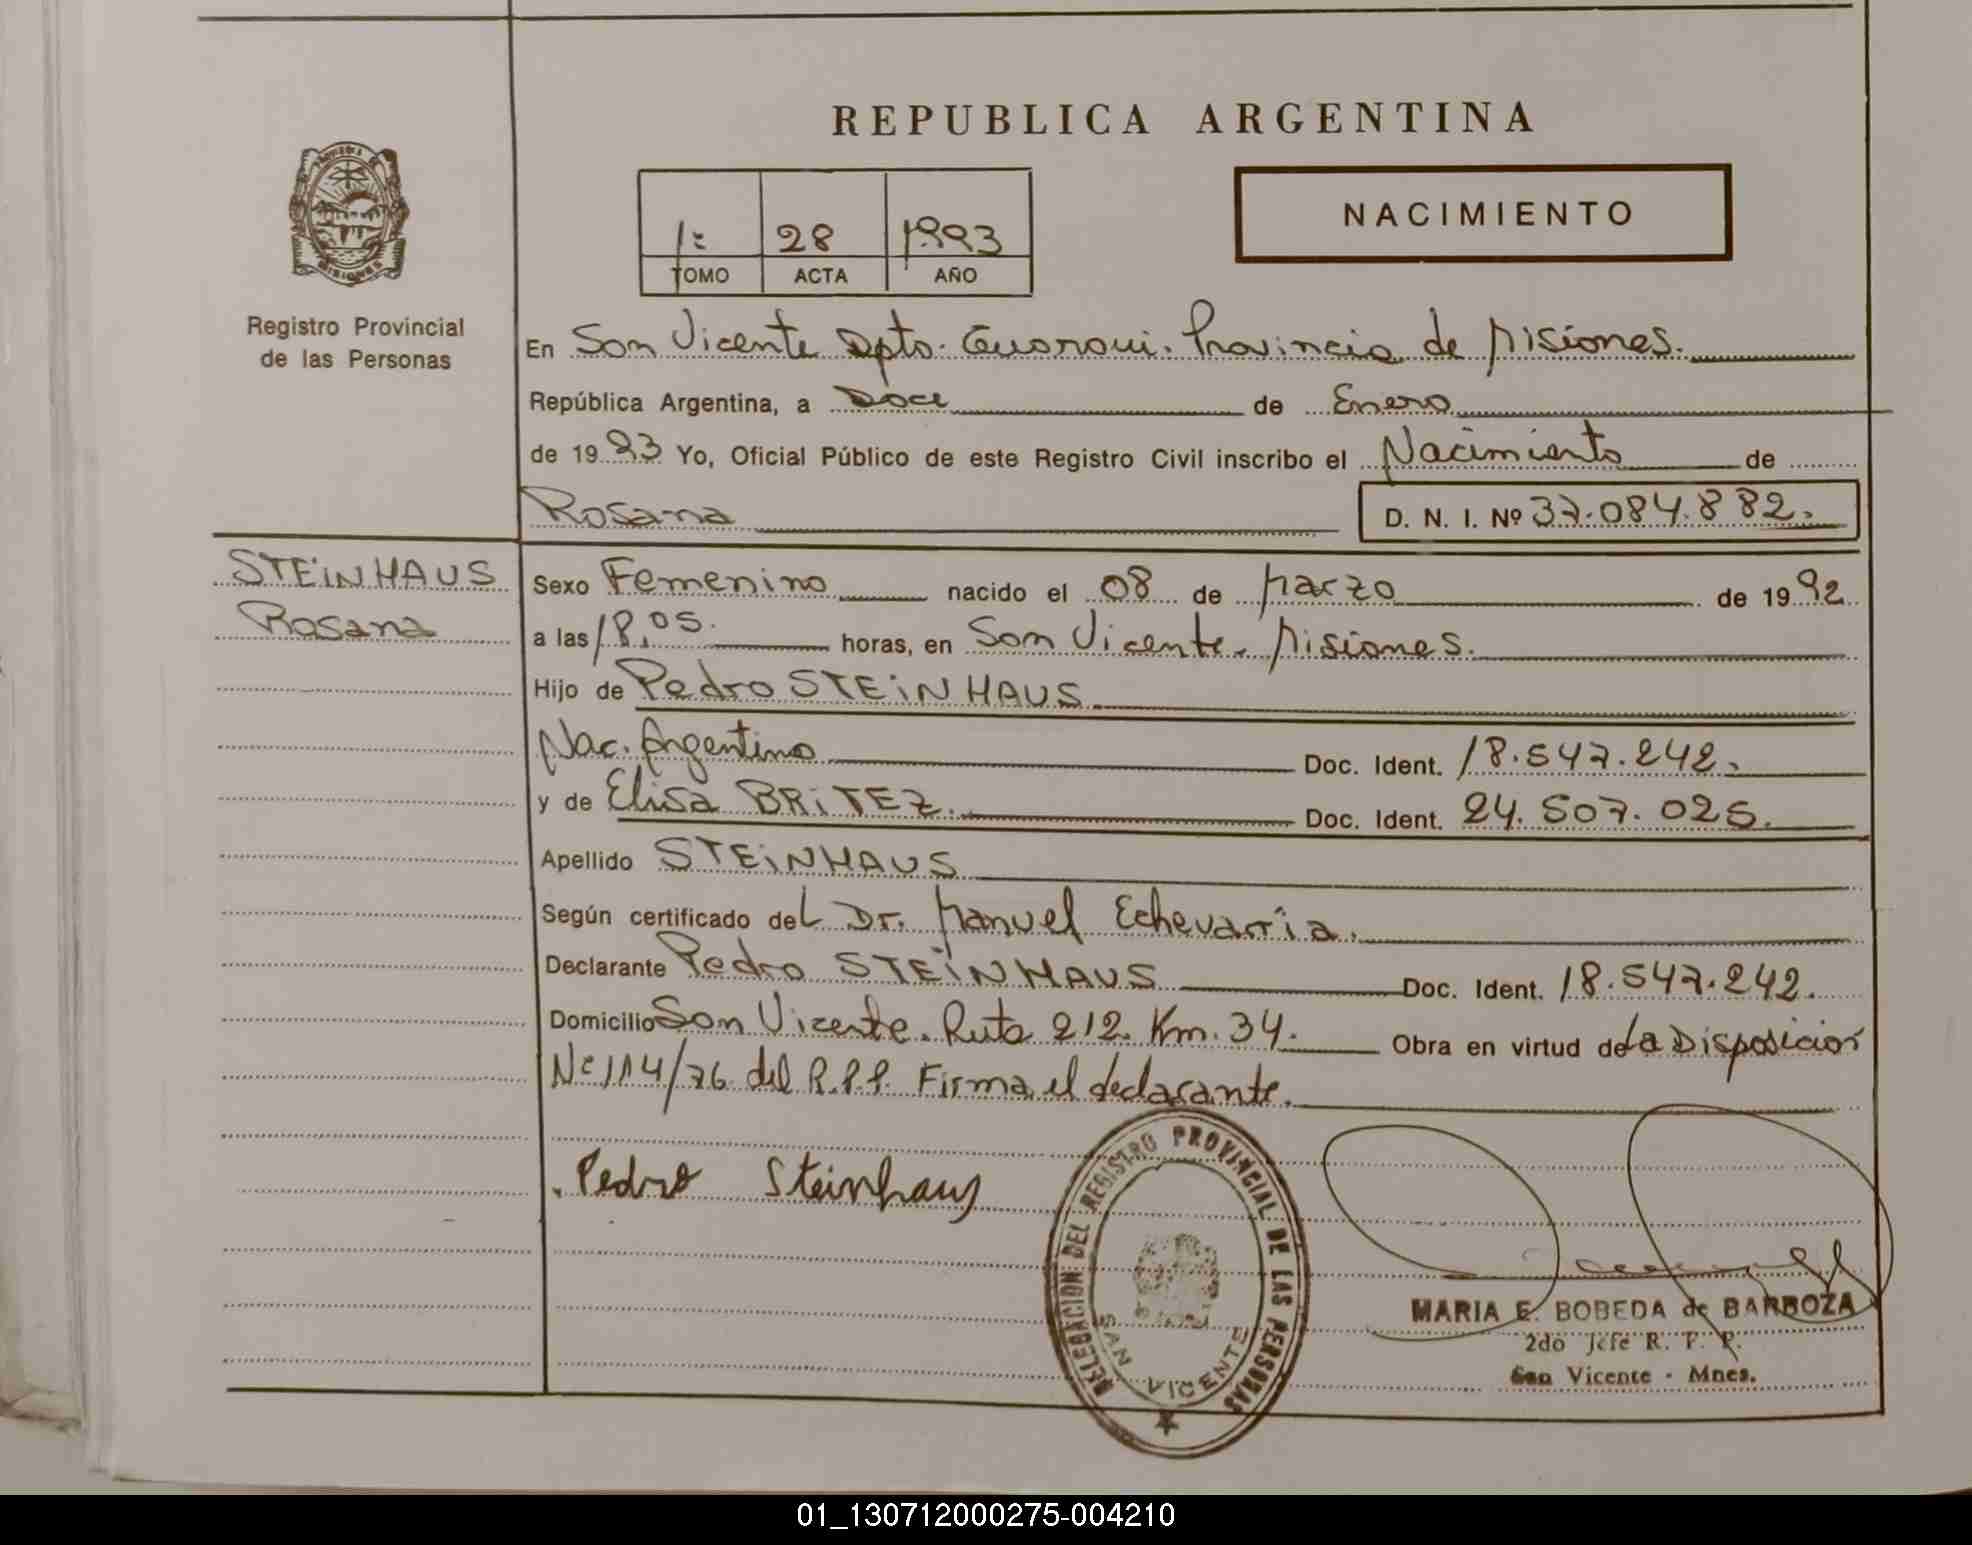 REPUBLICA ARGENTINA
NACIMIENTO
1º 28 1993
TOMO ACTA AÑO
PROVINCIA DE MISIONES
Registro Provincial
de las Personas
En San Vicente Dpto. Guarani. Provincia de Misiones.
República Argentina, a Doce de Enero
de 1993 Yo, Oficial Público de este Registro Civil inscribo el Nacimiento de
Rosana D. N. I. Nº 37.084.882.
STEiNHAUS
Rosana
Sexo Femenino nacido el 08 de Marzo de 1992
a las 18,05. horas, en San Vicente. Misiones.
Hijo de Pedro STEiNHAUS
Nac. Argentino Doc. Ident. 18.547.242.
y de Elisa BRiTEZ. Doc. Ident. 24.507.025.
Apellido STEiNHAUS
Según certificado del Dr. Manuel Echevarria.
Declarante Pedro STEiNHAUS Doc. Ident. 18.547.242.
Domicilio San Vicente. Ruta 212. Km. 34. Obra en virtud de La Disposicion
Nº 114/76 del R.P.P. Firma el declarante.
Pedro Steinhaus
DELEGACION DEL REGISTRO PROVINCIAL DE LAS PERSONAS
SAN VICENTE
MARIA E. BOBEDA de BARBOZA
2do Jefe R. P. P.
San Vicente - Mnes.
01_130712000275-004210